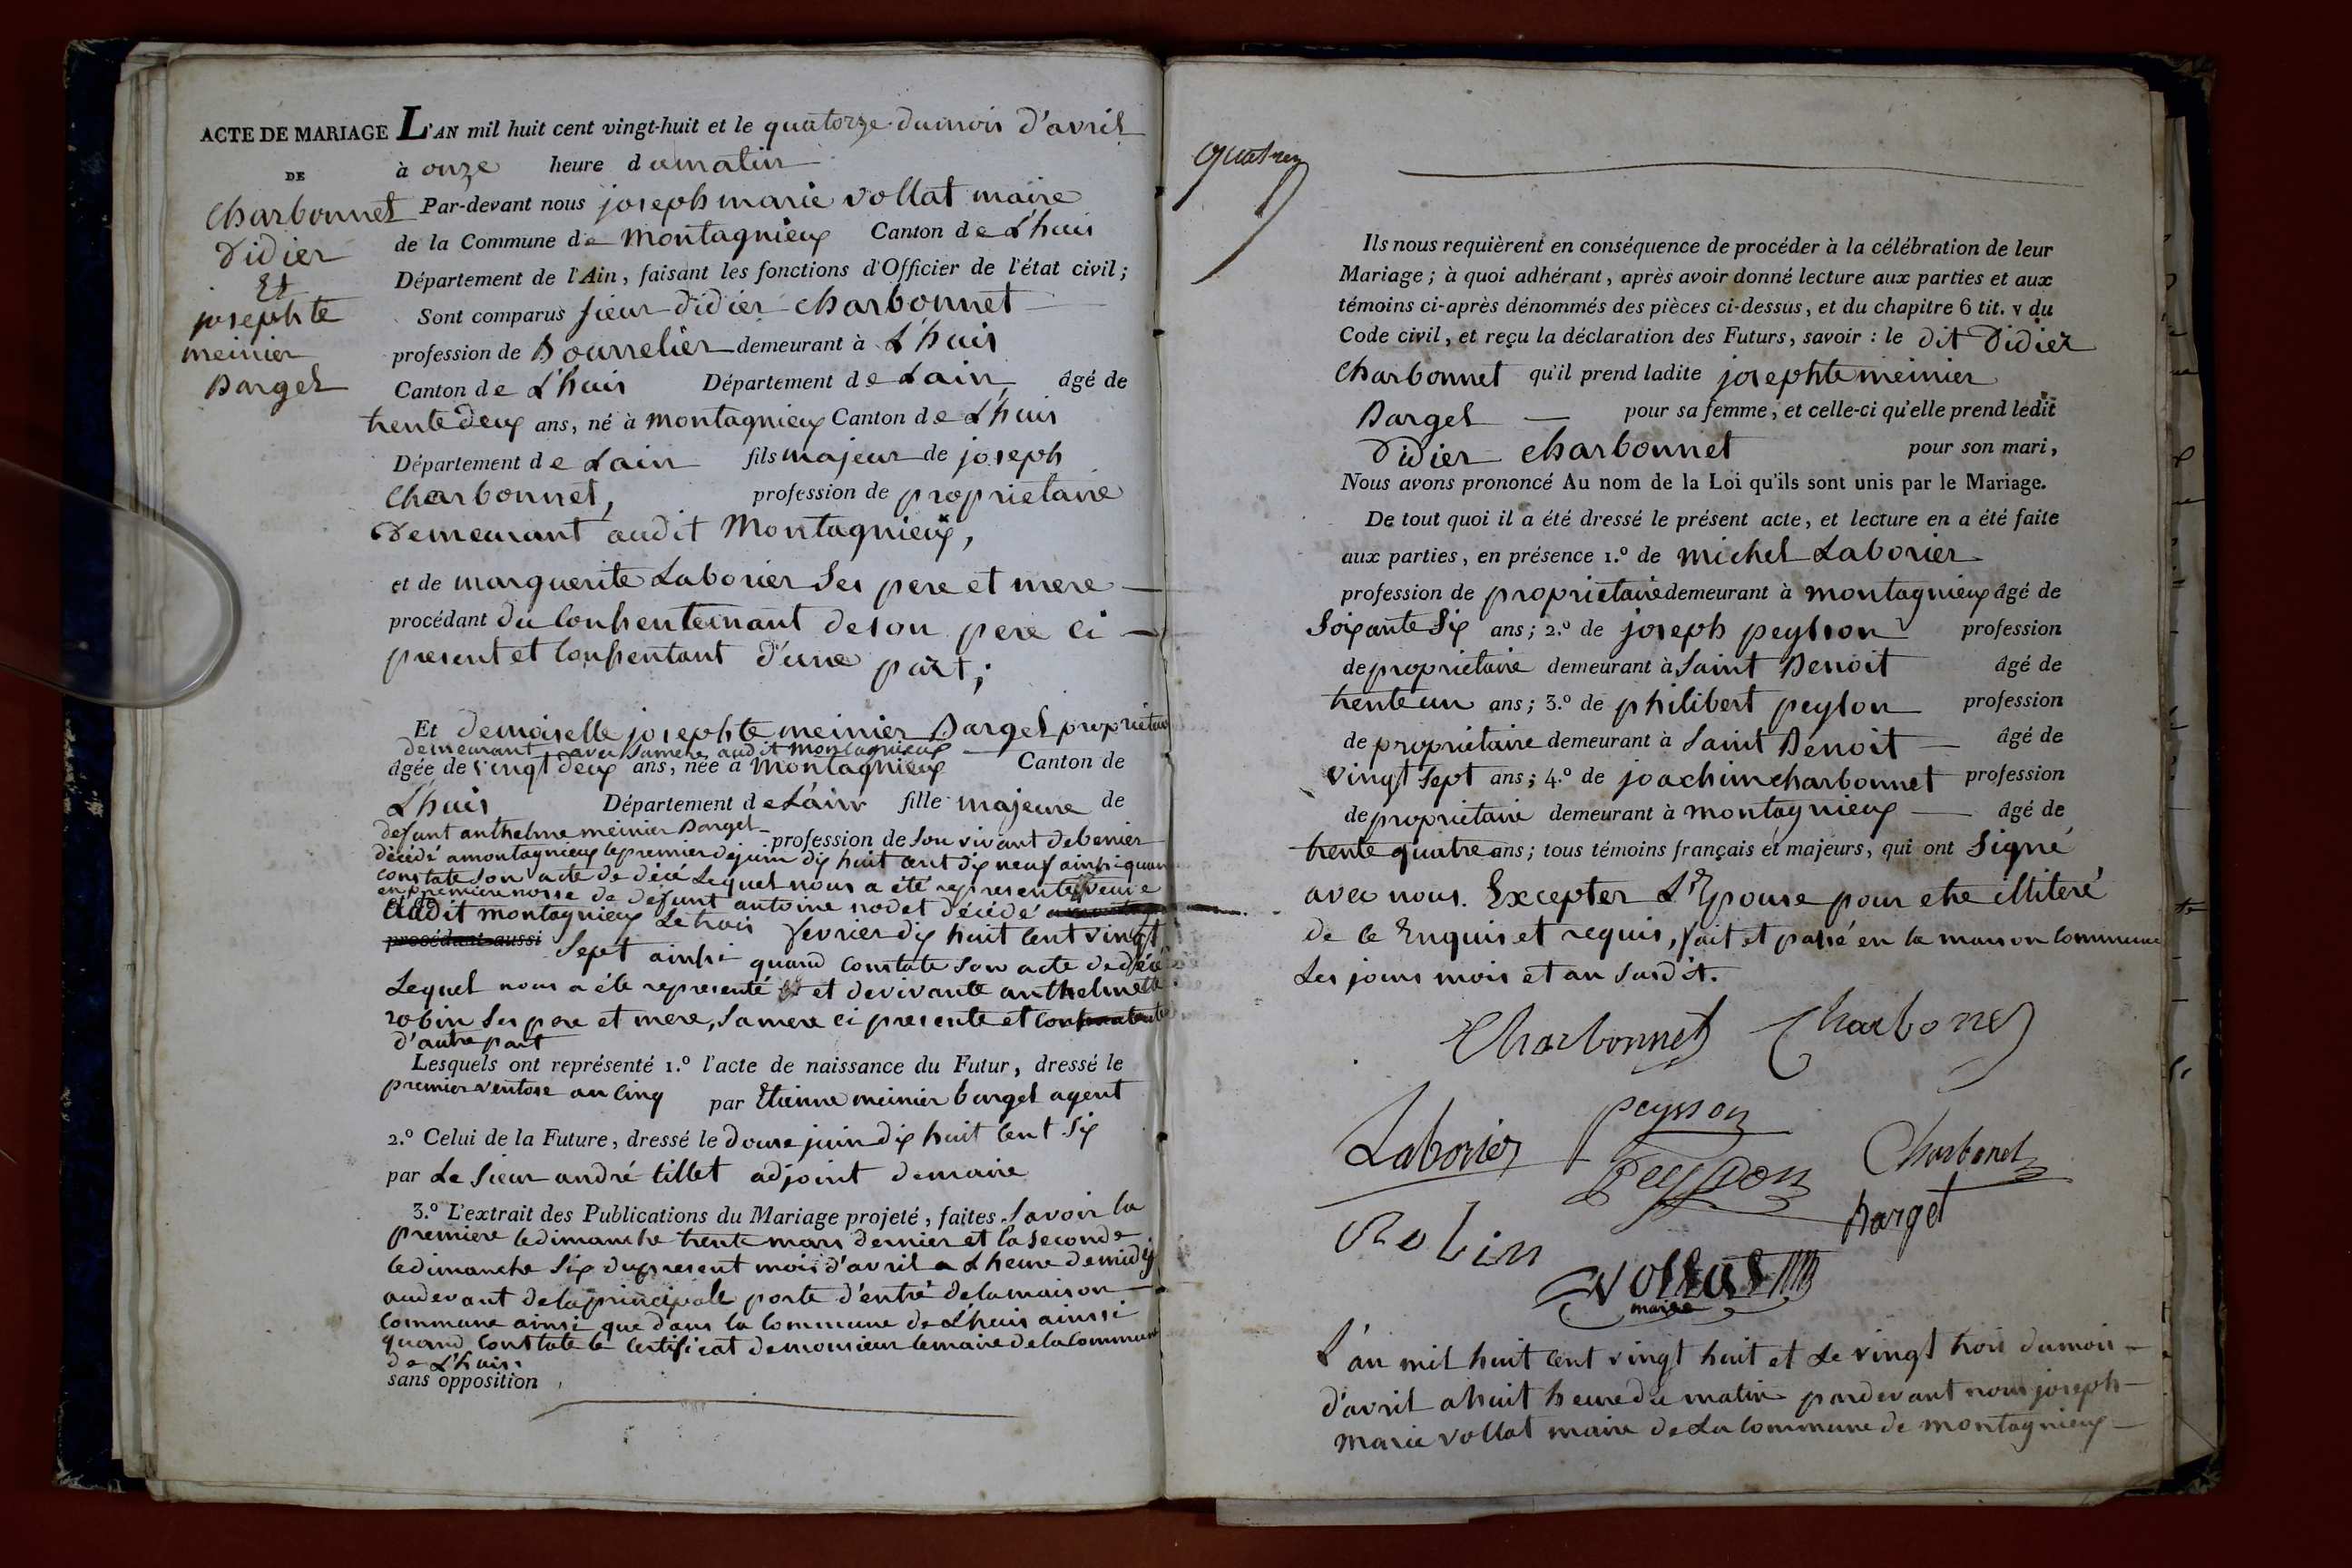 ACTE DE MARIAGE
DE
Charbonnet
Didier
Et
josephte
meinier
Barget
L'AN mil huit cent vingt-huit et le quatorze du mois d'avril
à onze heure du matin
Par-devant nous joseph marie vollat maire
de la Commune de Montagnieux Canton de L'huis
Département de l'Ain, faisant les fonctions d'Officier de l'état civil;
Sont comparus sieur didier charbonnet
profession de Bourrelier demeurant à L'huis
Canton de L'huis Département de Lain âgé de
trente deux ans, né à montagnieux Canton de L'huis
Département de Lain fils majeur de joseph
Charbonnet, profession de proprietaire
Demeurant audit Montagnieux,
et de marguerite Laborier Ses pere et mere
procédant du Consentemant de son pere ci
present et Consentant d'une part;
Et demoiselle josephte meinier Barget proprietaire
demeurant avec sa mere audit montagnieux
âgée de vingt deux ans, née à Montagnieux Canton de
L'huis Département de L'ain fille majeure de
defunt anthelme meinier Barget profession de Son vivant
décédé a montagnieux le premier de juin dix huit cent dix neuf ainsi quan
constate son acte de décé Lequel nous a été representé veuve
en premiere nosse de defunt antoine nodet décédé
audit montagnieux Le trois fevrier dix huit cent vingt
procédant aussi Sept ainsi quand constate son acte de décé
Lequel nous a éte representé et de vivante anthelmette
robin Ses pere et mere, sa mere ci presente et consentante
d'autre part
Lesquels ont représenté 1.º l'acte de naissance du Futur, dressé le
premier ventose an cinq par Etienne meinier barget agent
2.º Celui de la Future, dressé le douze juin dix huit Cent Six
par Le Sieur andré tillet adjoint demaire
3.º L'extrait des Publications du Mariage projeté, faites Savoir la
premiere le dimanche trente mars dernier et la seconde
le dimanche Six du present mois d'avril a L heure de midy
au devant de la principalle porte d'entré de la maison
Commune ainsi que dans la commune de L'huis ainssi
quand Constate le Certificat de monsieur le maire de la commune
de L'huis.
sans opposition
Ils nous requièrent en conséquence de procéder à la célébration de leur
Mariage; à quoi adhérant, après avoir donné lecture aux parties et aux
témoins ci-après dénommés des pièces ci-dessus, et du chapitre 6 tit. v du
Code civil, et reçu la déclaration des Futurs, savoir: le dit Didier
Charbonnet qu'il prend ladite josephte meinier
Barget pour sa femme, et celle-ci qu'elle prend ledit
Didier charbonnet pour son mari,
Nous avons prononcé Au nom de la Loi qu'ils sont unis par le Mariage.
De tout quoi il a été dressé le présent acte, et lecture en a été faite
aux parties, en présence 1.º de michel Laborier
profession de proprietaire demeurant à montagnieux âgé de
Soixante Six ans; 2.º de joseph peysson profession
de proprietaire demeurant à Saint Benoit âgé de
trente un ans; 3.º de philibert peyson profession
de proprietaire demeurant à Saint Benoit âgé de
vingt Sept ans; 4.º de joachim charbonnet profession
de proprietaire demeurant à montagnieux âgé de
trente quatre ans; tous témoins français et majeurs, qui ont Signé
avec nous. Excepter L'Epouse pour etre illiteré
de ce Enquis et requis, fait et passé en la maison commune
Les jours mois et an susdit.
Charbonnet Charbonet
Laborier peysson Charbonet
Peysson
Robin Barget
vollat
maire
L'an mil huit Cent vingt huit et Le vingt trois du mois
d'avril a huit heure du matin pardevant nous joseph
Marie vollat maire de La Commune de montagnieux